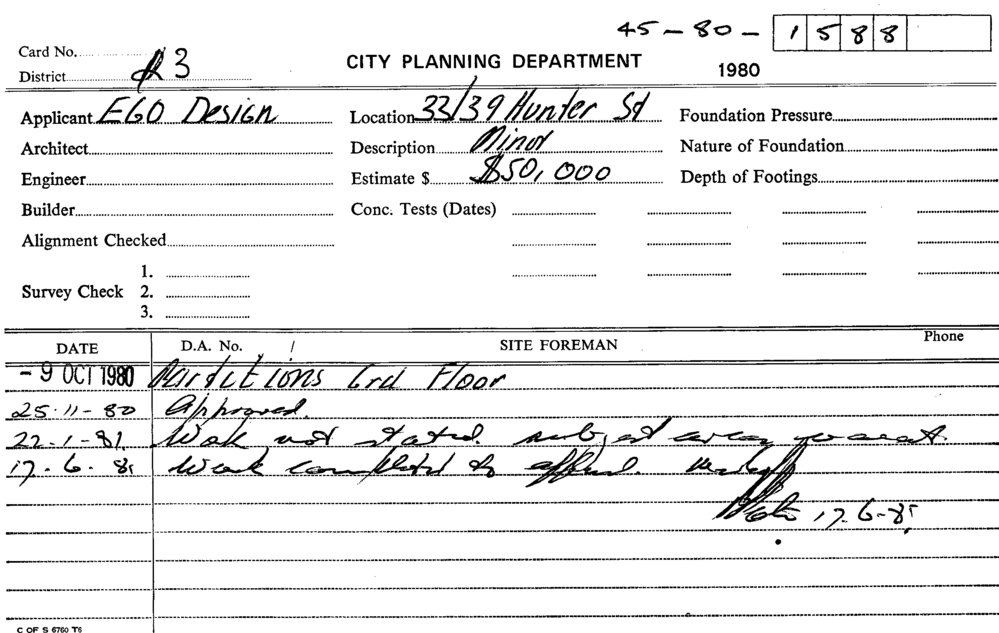 45-80-1588
Card No.
District R3
CITY PLANNING DEPARTMENT
1980
Applicant EGO Design
Location 33/39 Hunter St
Foundation Pressure
Architect
Description Minor
Nature of Foundation
Engineer
Estimate $ $50,000
Depth of Footings
Builder
Conc. Tests (Dates)
Alignment Checked
Survey Check 1.
2.
3.
DATE D.A. No. SITE FOREMAN Phone
- 9 OCT 1980 Partitions Grd Floor
25-11-80 Approved.
22-1-81 Work not started.
17-6-81 Work completed
17-6-81
C OF S 6760 T6